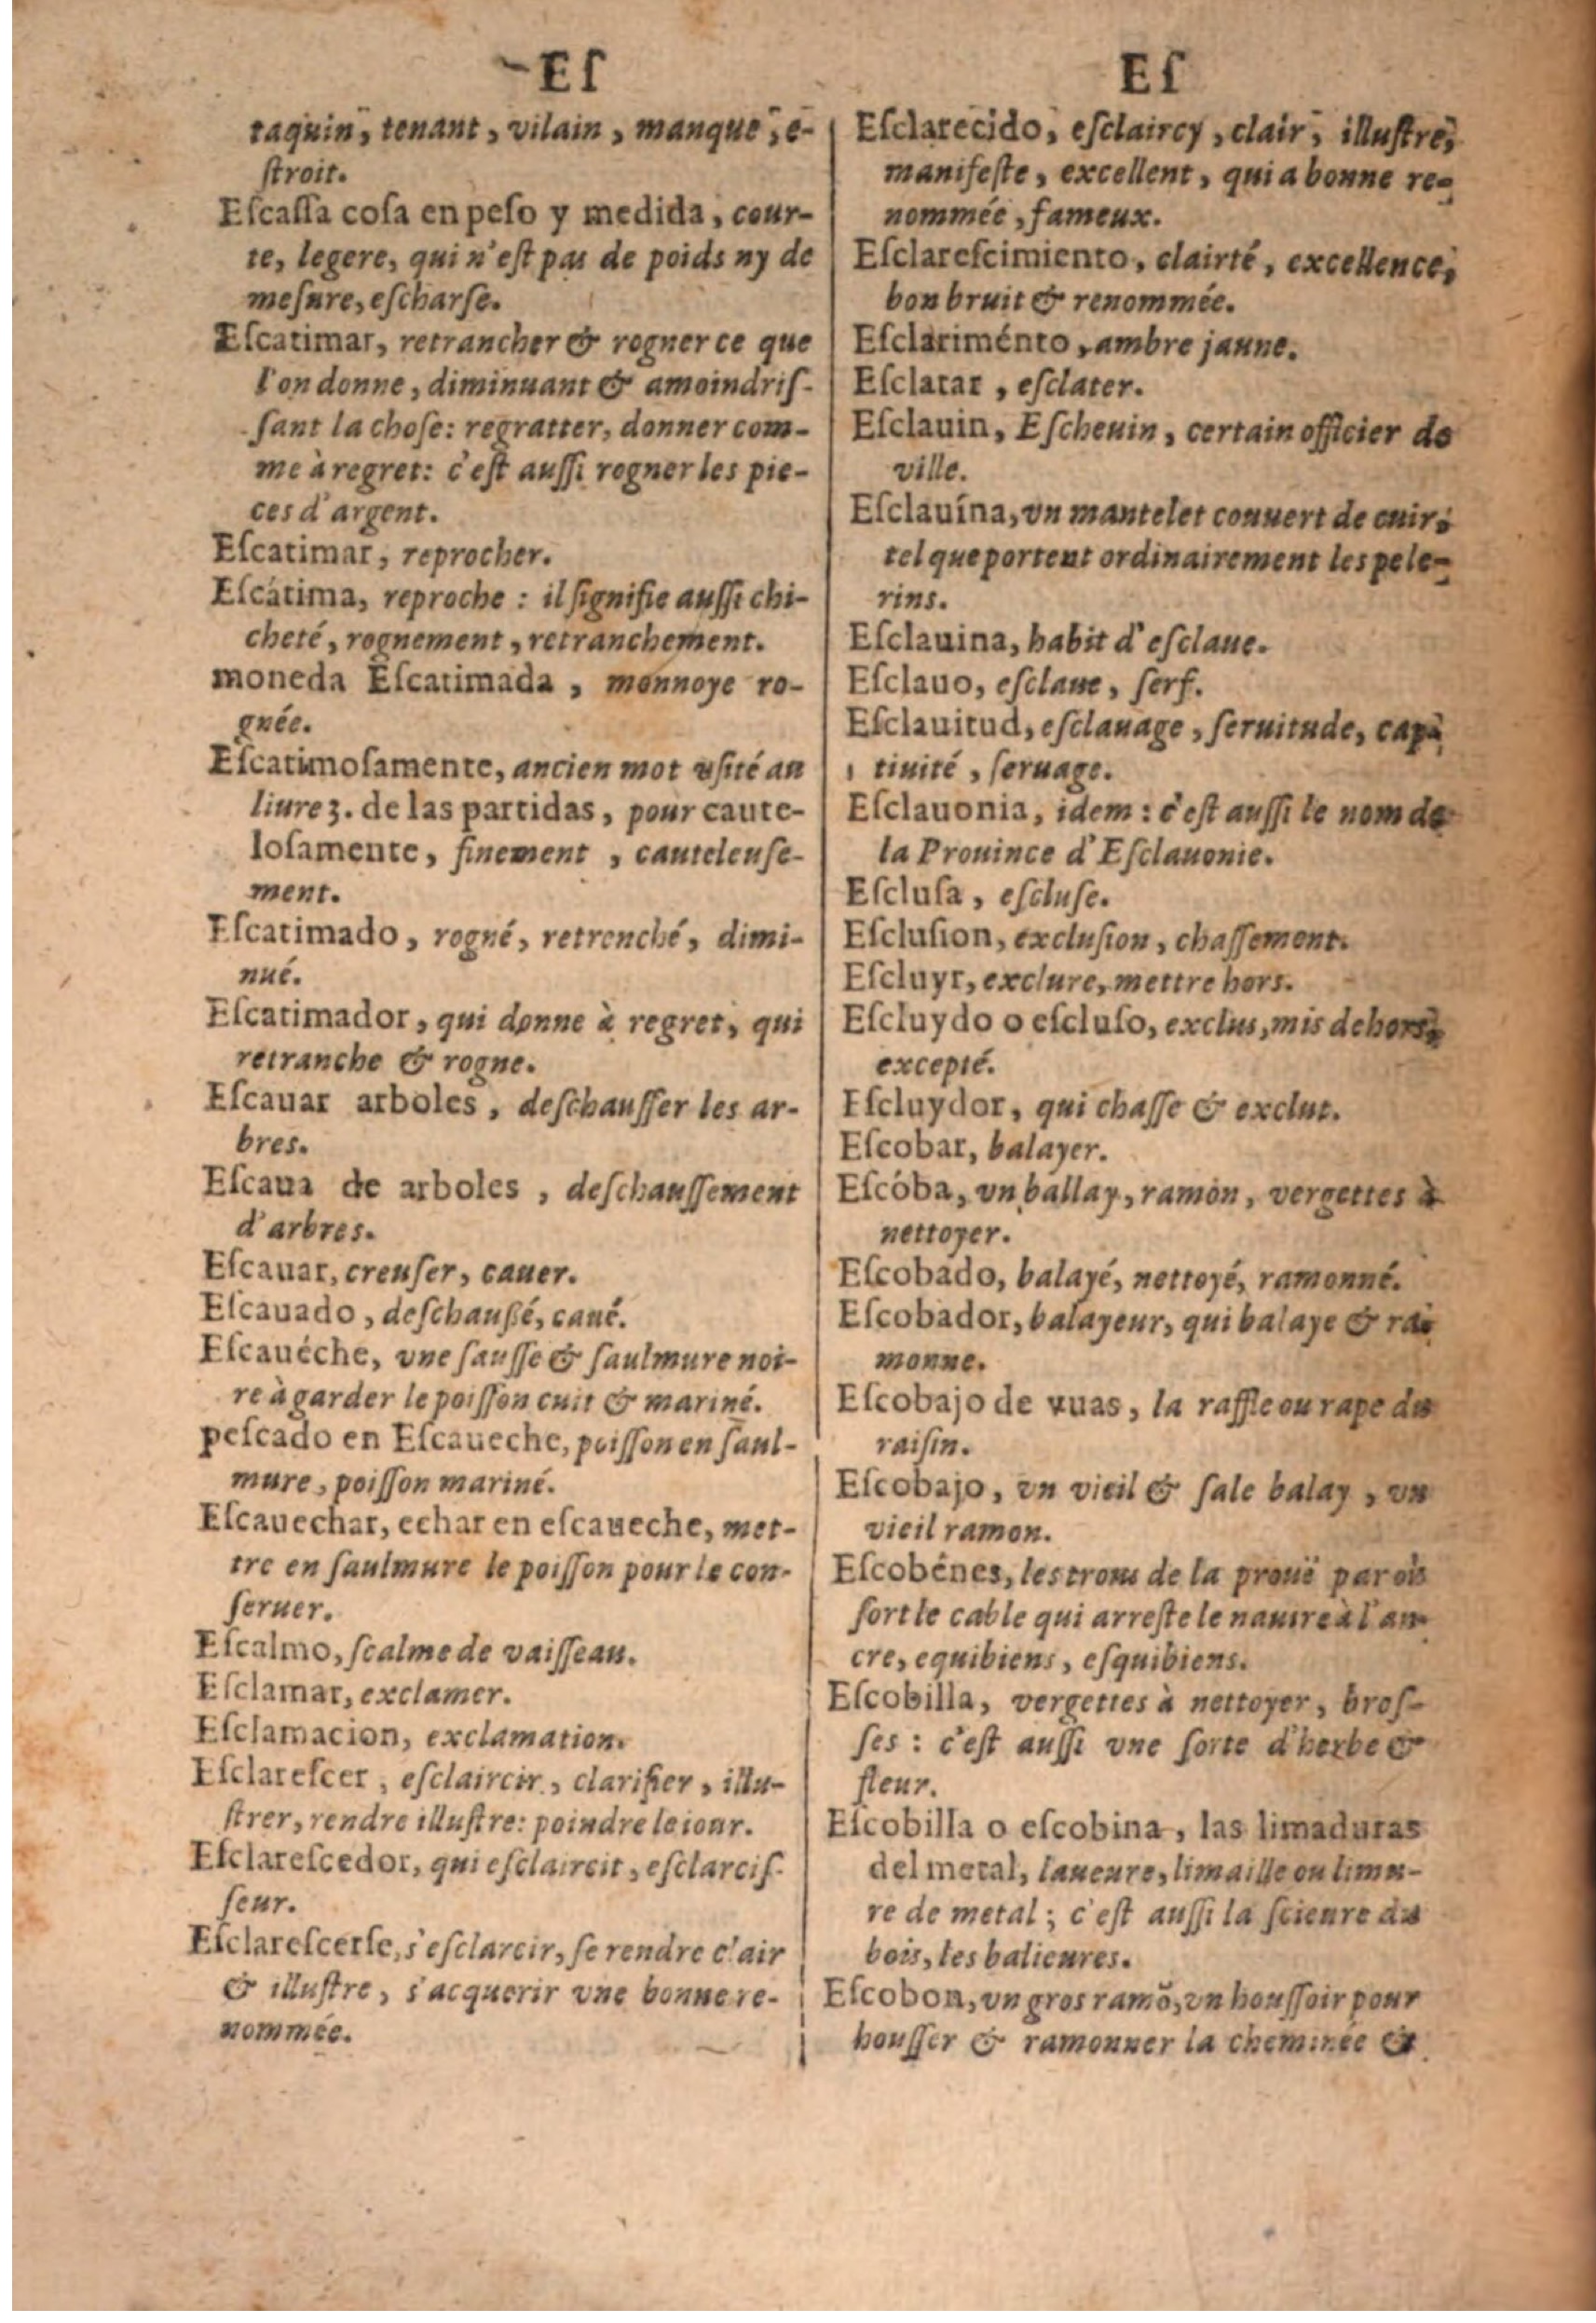 Eſ
taquin, tenant, vilain, manque, e-
ſtroit.
Eſcaſſa coſa en peſo y medida, cour-
te, legere, qui n'eſt pas de poids ny de
meſure, eſcharſe.
Eſcatimar, retrancher & rogner ce que
l'on donne, diminuant & amoindriſ-
ſant la choſe: regratter, donner com-
me à regret: c'eſt auſſi rogner les pie-
ces d'argent.
Eſcatimar, reprocher.
Eſcátima, reproche : il ſignifie auſſi chi-
cheté, rognement, retranchement.
moneda Eſcatimada, monnoye ro-
gnée.
Eſcatimoſamente, ancien mot vſité au
liure 3. de las partidas, pour caute-
loſamente, finement, cauteleuſe-
ment.
Eſcatimado, rogné, retrenché, dimi-
nué.
Eſcatimador, qui donne à regret, qui
retranche & rogne.
Eſcauar arboles, deſchauſſer les ar-
bres.
Eſcaua de arboles, deſchauſſement
d'arbres.
Eſcauar, creuſer, cauer.
Eſcauado, deſchauſsé, caué.
Eſcauéche, vne ſauſſe & ſaulmure noi-
re à garder le poiſſon cuit & mariné.
peſcado en Eſcaueche, poiſſon en ſaul-
mure, poiſſon mariné.
Eſcauechar, echar en eſcaueche, met-
tre en ſaulmure le poiſſon pour le con-
ſeruer.
Eſcalmo, ſcalme de vaiſſeau.
Eſclamar, exclamer.
Eſclamacion, exclamation.
Eſclareſcer, eſclaircir, clarifier, illu-
ſtrer, rendre illuſtre: poindre le iour.
Eſclareſcedor, qui eſclaircit, eſclarciſ-
ſeur.
Eſclareſcerſe, s'eſclarcir, ſe rendre clair
& illuſtre, s'acquerir vne bonne re-
nommée.
Eſ
Eſclarecido, eſclaircy, clair, illuſtre,
manifeſte, excellent, qui a bonne re-
nommée, fameux.
Eſclareſcimiento, clairté, excellence,
bon bruit & renommée.
Eſclariménto, ambre jaune.
Eſclatar, eſclater.
Eſclauin, Eſcheuin, certain officier de
ville.
Eſclauína, vn mantelet couuert de cuir,
tel que portent ordinairement les pele-
rins.
Eſclauina, habit d'eſclaue.
Eſclauo, eſclaue, ſerf.
Eſclauitud, eſclauage, ſeruitude, cap-
tiuité, ſeruage.
Eſclauonia, idem : c'eſt auſſi le nom de
la Prouince d'Eſclauonie.
Eſcluſa, eſcluſe.
Eſcluſion, excluſion, chaſſement.
Eſcluyr, exclure, mettre hors.
Eſcluydo o eſcluſo, exclus, mis dehors,
excepté.
Eſcluydor, qui chaſſe & exclut.
Eſcobar, balayer.
Eſcóba, vn ballay, ramon, vergettes à
nettoyer.
Eſcobado, balayé, nettoyé, ramonné.
Eſcobador, balayeur, qui balaye & ra-
monne.
Eſcobajo de vuas, la raffle ou rape du
raiſin.
Eſcobajo, vn vieil & ſale balay, vn
vieil ramon.
Eſcobénes, les trous de la prouë par où
ſort le cable qui arreſte le nauire à l'an-
cre, equibiens, eſquibiens.
Eſcobilla, vergettes à nettoyer, broſ-
ſes : c'eſt auſſi vne ſorte d'herbe &
fleur.
Eſcobilla o eſcobina, las limaduras
del metal, laueure, limaille ou limu-
re de metal ; c'eſt auſſi la ſcieure du
bois, les balieures.
Eſcobon, vn gros ramõ, vn houſſoir pour
houſſer & ramonner la cheminée &